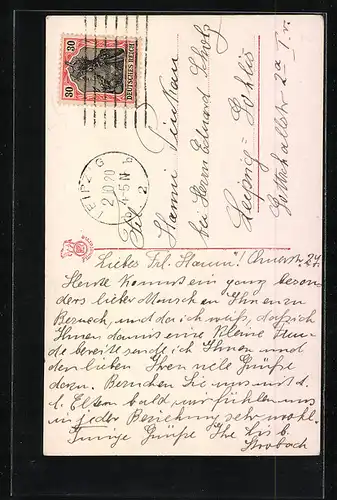 30 DEUTSCHES REICH 30
LEIPZIG
2.10.20
4-5 N
b
2.
Frl.
Hanni Pinkau
bei Herrn Eduard Scholz
Leipzig-Gohlis
2a I. r.
Liebes Frl. Hanni! 24.
Heute kommt ein ganz beson-
ders lieber Mensch an Ihnen zu
Besuch, und da ich weiß, daß ich
Ihnen damit eine kleine Freu-
de bereite sende ich Ihnen und
den lieben Ihren viele Grüße
dazu. Besuchen Sie uns mit d.
l. Eltern bald wir fühlen uns
in jeder Beziehung sehr wohl.
Innige Grüße Ihr
Strobach